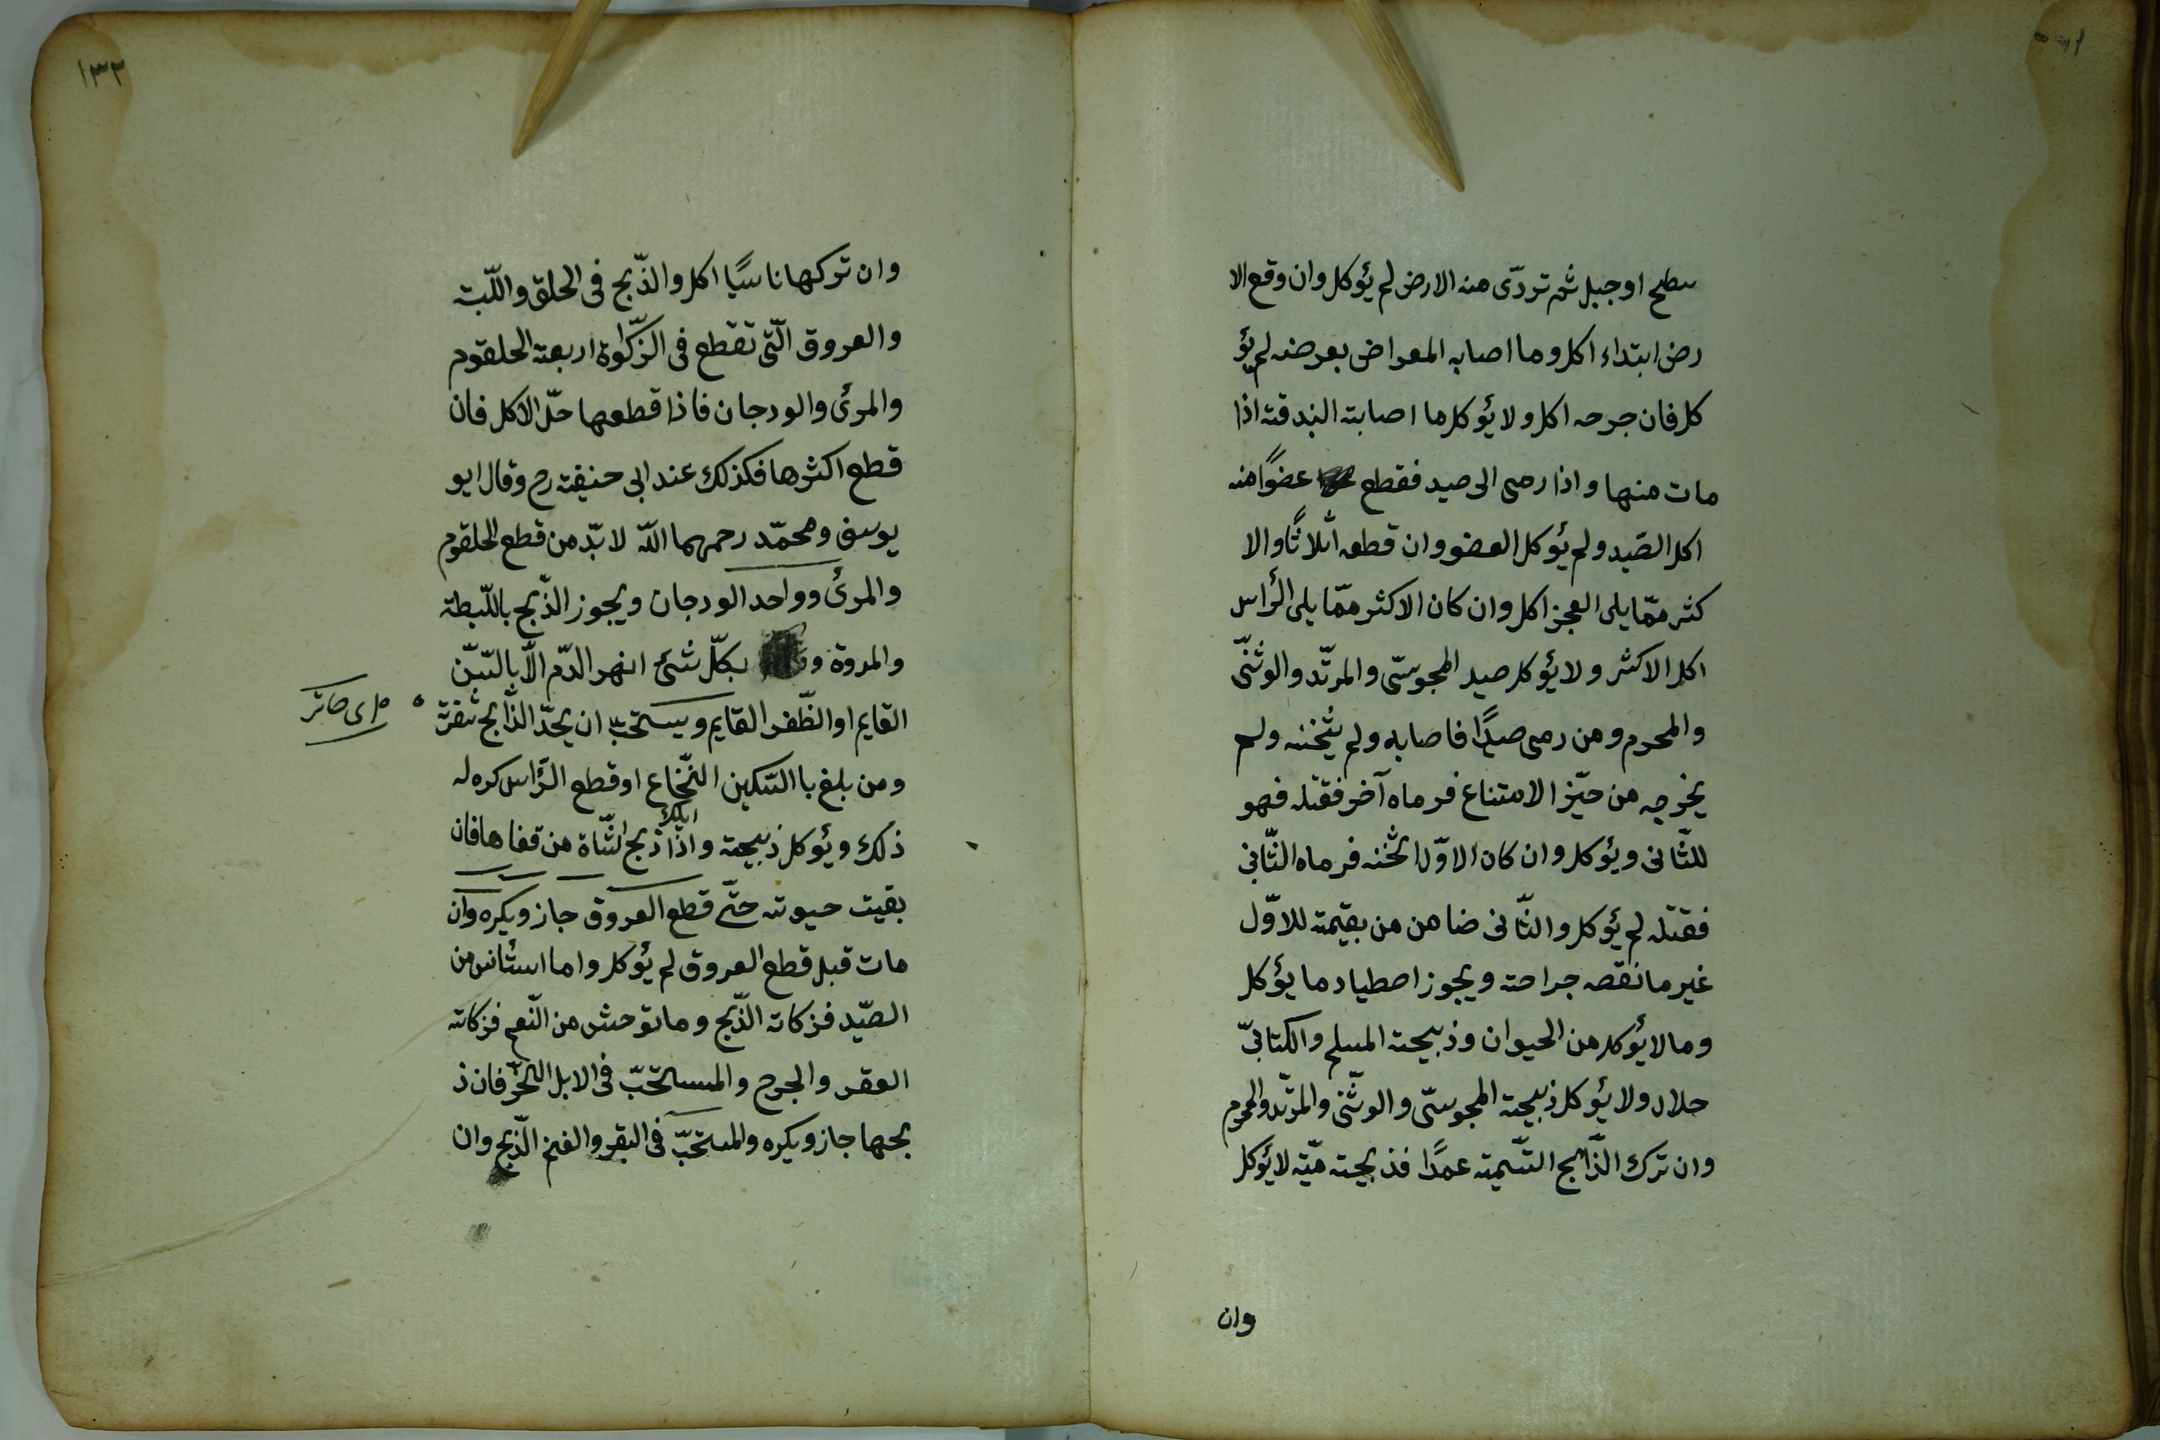 سطح او جبل ثم تردّى منه الارض لم يؤكل وان وقع الا
رض ابتداء اكل وما اصابه المعراض بعرضه لم يؤ
كل فان جرحه اكل ولا يؤكل ما اصابته البندقة اذا
مات منها واذا رمى الى صيد فقطع عضوًا منه
اكل الصّيد ولم يؤكل العضو وان قطعه اثلاثًا والا
كثر ممّا يلى العجز اكل وان كان الاكثر ممّا يلى الرّأس
اكل الاكثر ولا يؤكل صيد المجوسّى والمرتّد والوثنّى
والمحرم ومن رمى صيدًا فاصابه ولم يثخنه ولم
يخرجه من حيّز الامتناع فرماه آخر فقتله فهو
للثّانى ويؤكل وان كان الاوّل اثخنه فرماه الثّانى
فقتله لم يؤكل والثّانى ضامن من بقيمته للاوّل
غير ما نقصه جراحته ويجوز اصطياد ما يؤكل
وما لا يؤكل من الحيوان وذبيحة المسلم والكتابىّ
حلال ولا يؤكل ذبيحة المجوسّى والوثنّى والمرتّد والمحرم
وان ترك الذّابح التّسمية عمدًا فذبيحته ميّتة لا يؤكل
وان
١٣٢
وان تركها ناسيًا اكل والذّبح فى الحلق واللّبة
والعروق الّتى تقطع فى الزّكوة اربعة الحلقوم
والمرئ والودجان فاذا قطعها حلّ الاكل فان
قطع اكثرها فكذلك عند ابى حنيفة رح وقال ابو
يوسف ومحمّد رحمهما اللّه لا بدّ من قطع الحلقوم
والمرئ وواحد الودجان ويجوز الذّبح باللّيطة
والمروة وبكلّ شئ انهر الدّم الّا بالسّنّ
القايم او الظّفر القايم ويستحبّ ان يحدّ الذّابح شفرته
ومن بلغ باالسّكين النّخاع او قطع الرّأس كره له
ذلك ويؤكل ذبيحته واذا ذبح الشّاة من قفاها فان
بقيت حيوته حتّى قطع العروق جاز ويكره وان
مات قبل قطع العروق لم يؤكل واما استأنس من
الصّيد فزكاته الذّبح وما توحش من النّعم فزكاته
العقر والجرح والمستحبّ فى الابل النّحر فان ذ
بحها جاز ويكره والمستحبّ فى البقر والغنم الذّبح وان